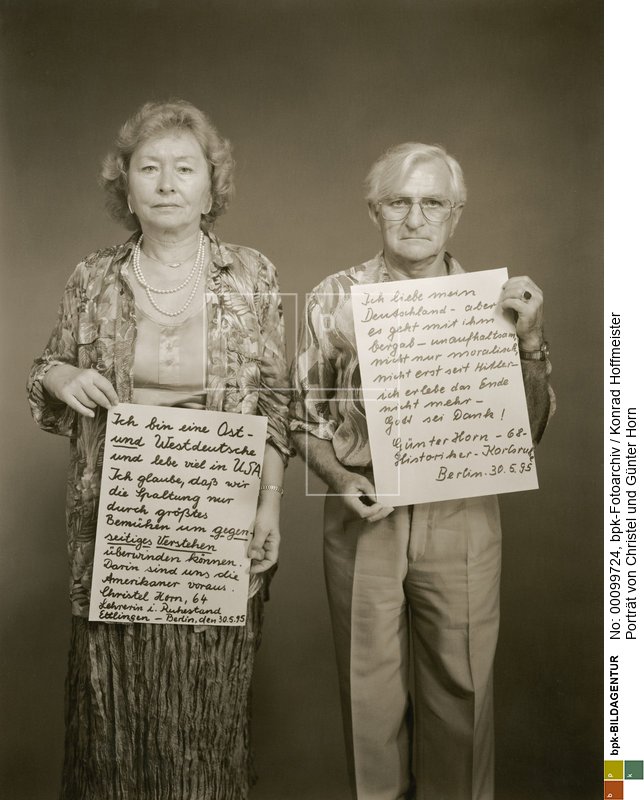 Ich bin eine Ost-
und Westdeutsche
und lebe viel in USA
Ich glaube, daß wir
die Spaltung nur
durch größtes
Bemühen um gegen-
seitiges Verstehen
überwinden können.
Darin sind uns die
Amerikaner voraus.
Christel Horn, 64
Lehrerin i. Ruhestand
Ettlingen – Berlin, den 30.5.95
Ich liebe mein
Deutschland - aber
es geht mit ihm
bergab - unaufhaltsam,
nicht nur moralisch,
nicht erst seit Hitler-
ich erlebe das Ende
nicht mehr –
Gott sei Dank!
Günter Horn - 68-
Historiker - Karlsruhe
Berlin. 30.5.95
bpk-BILDAGENTUR
No: 00099724, bpk-Fotoarchiv / Konrad Hoffmeister
Porträt von Christel und Günter Horn
b p k